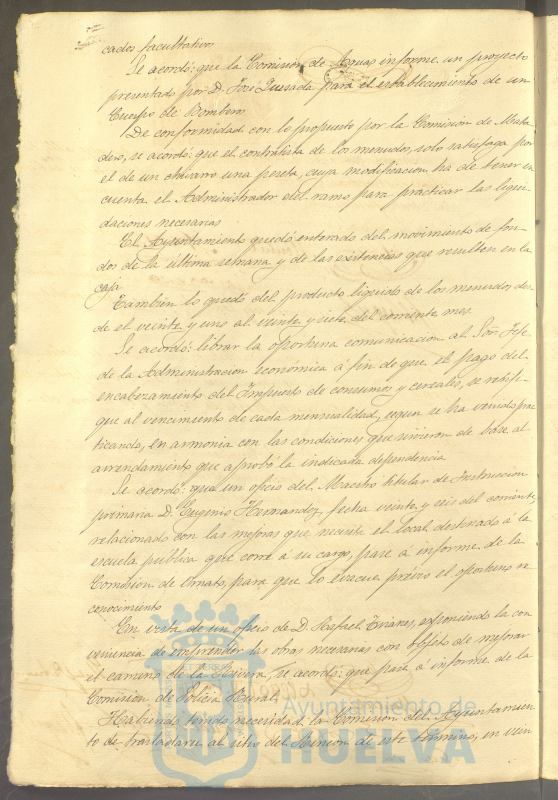 cados facultativos
Se acordó: que la Comisión de Aguas informe un proyecto
presentado por D. José Quesada para el establecimiento de un
Cuerpo de Bomberos
De conformidad con lo propuesto por la Comisión de Mata
dero, se acordó: que el contratista de los menudos, solo satisfaga por
el de un chivarro una peseta, cuya modificacion ha de tener en
cuenta el Administrador del ramo para practicar las liqui
daciones necesarias
El Ayuntamiento quedó enterado del movimiento de fon
dos de la última semana y de las existencias que resulten en la
caja
Tambien lo quedó del producto liquido de los menudos, des
de el veinte y uno al veinte y siete del corriente mes.
Se acordó: librar la oportuna comunicacion al Sor Jefe
de la Administracion económica á fin de que el pago del
encabezamiento del Impuesto de consumos y cereales, se verifi
que al vencimiento de cada mensualidad, segun se ha venido prac
ticando, en armonia con las condiciones que sirvieron de base al
arrendamiento que aprobó la indicada dependencia
Se acordó: que un oficio del Maestro titular de Instruccion
primaria D. Eugenio Hernandez, fecha veinte y seis del corriente,
relacionado con las mejoras que necesita el local destinado á la
escuela pública que corre á su cargo, pase á informe de la
Comision de Ornato, para que lo evacue, prévio el oportuno re
conocimiento
En vista de un oficio de D. Rafael exponiendo la con
veniencia de emprender las obras necesarias con objeto de mejorar
el camino de la Rivera, se acordó: que pase á informe de la
Comision de Policia Rural
Habiendo tenido necesidad la Comision del Ayuntamien
to de trasladarse al sitio del Rincon de este término, en vein
Ayuntamiento de
HUELVA